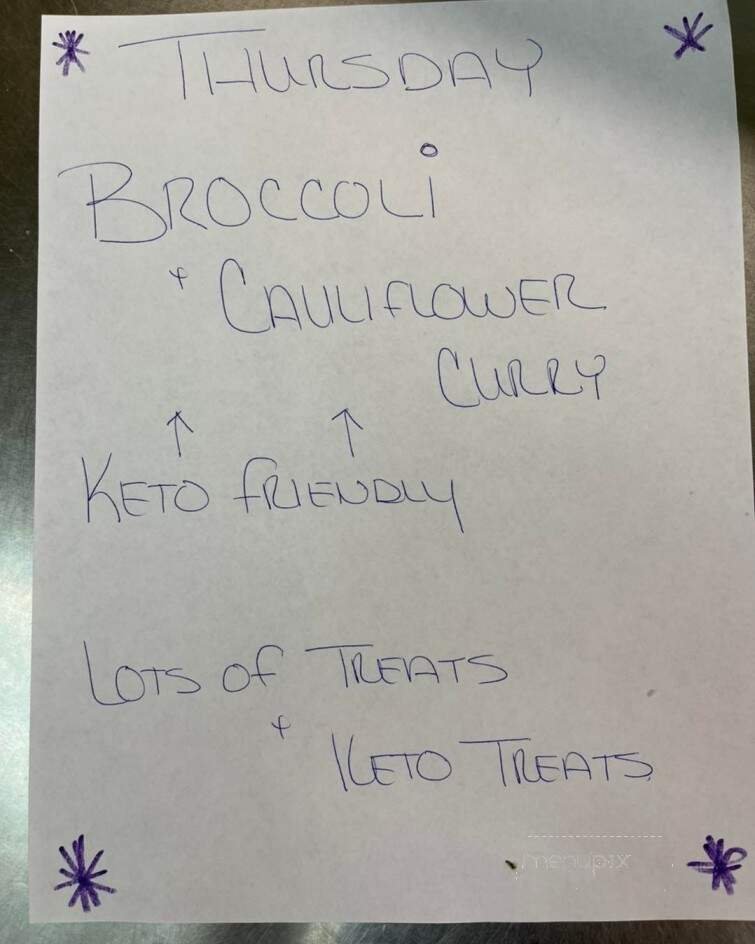 THURSDAY
BROCCOLi
+ CAULIFLOWER
CURRY
↑ ↑
KETO FRIENDLY
LOTS OF TREATS
+
KETO TREATS
menupix